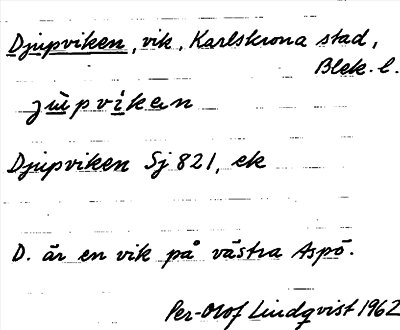 Djupviken, vik, Karlskrona stad,
Blek. l.
jùpvìkən
Djupviken Sj 821, ek
D. är en vik på västra Aspö.
Per-Olof Lindqvist 1962